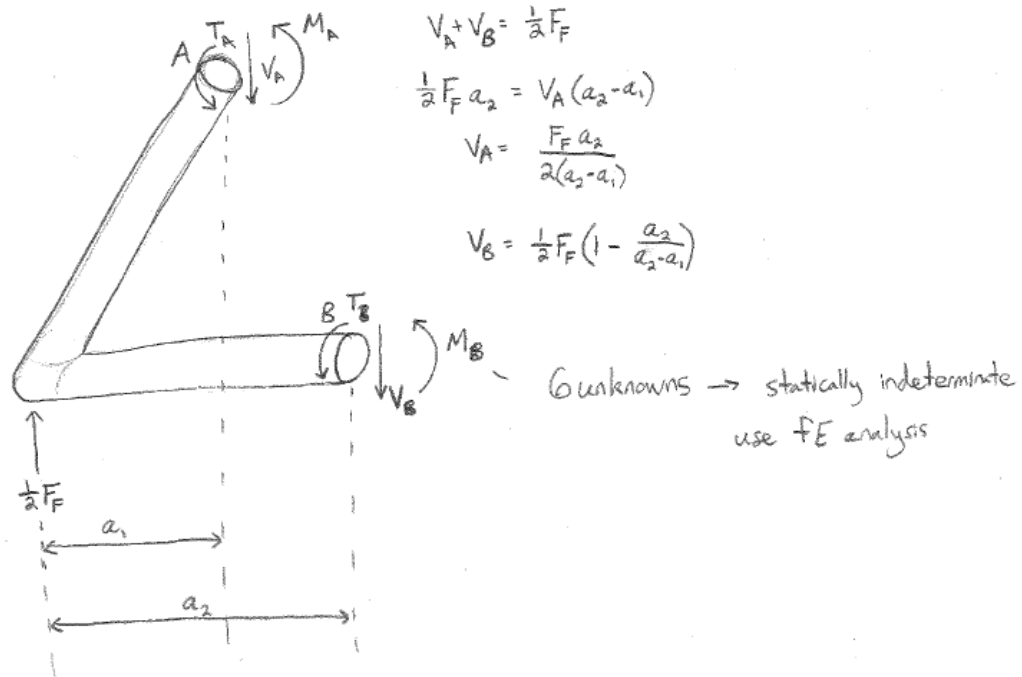 V_A + V_B = 1/2 F_F
1/2 F_F a_2 = V_A (a_2 - a_1)
V_A = F_F a_2 / 2(a_2 - a_1)
V_B = 1/2 F_F (1 - a_2 / a_2 - a_1)
A T_A V_A M_A
B T_B V_B M_B
6 unknowns → statically indeterminate
use fE analysis
1/2 F_F
a_1
a_2